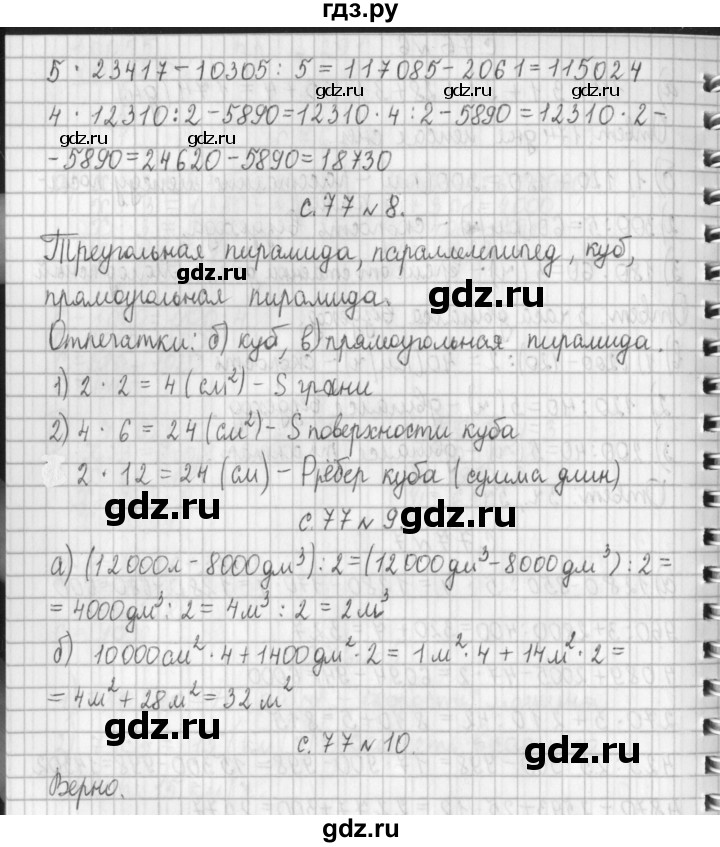 гдз.ру
5 · 23417 - 10305 : 5 = 117085 - 2061 = 115024
gdz.ru gdz.ru
4 · 12310 : 2 - 5890 = 12310 · 4 : 2 - 5890 = 12310 · 2 -
gdz.ru gdz.ru
- 5890 = 24620 - 5890 = 18730
с. 77 № 8.
Треугольная пирамида, параллелепипед, куб,
gdz.ru gdz.ru
прямоугольная пирамида.
Отпечатки: б) куб, в) прямоугольная пирамида.
1) 2 · 2 = 4 (см²) - S грани
2) 4 · 6 = 24 (см²) - S поверхности куба
2 · 12 = 24 (см) - Pрёбер куба (сумма длин)
gdz.ru gdz.ru
с. 77 № 9.
а) (12000л - 8000дм³) : 2 = (12000дм³ - 8000дм³) : 2 =
= 4000дм³ : 2 = 4м³ : 2 = 2м³
б) 10000см² · 4 + 1400дм² · 2 = 1м² · 4 + 14м² · 2 =
= 4м² + 28м² = 32м²
gdz.ru gdz.ru
с. 77 № 10.
Верно.
gdz.ru